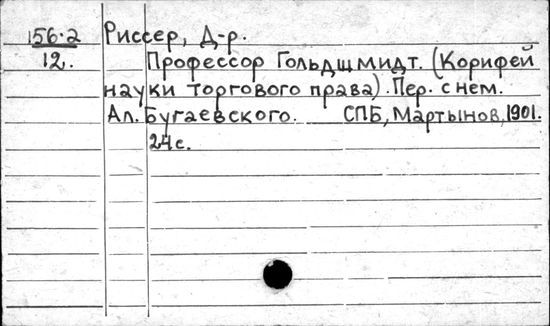 156.2 Риссер, Д-р.
12. Профессор Гольдшмидт. (Корифей
науки торгового права). Пер. с нем.
Ал. Бугаевского. СПБ, Мартынов, 1901.
24 с.